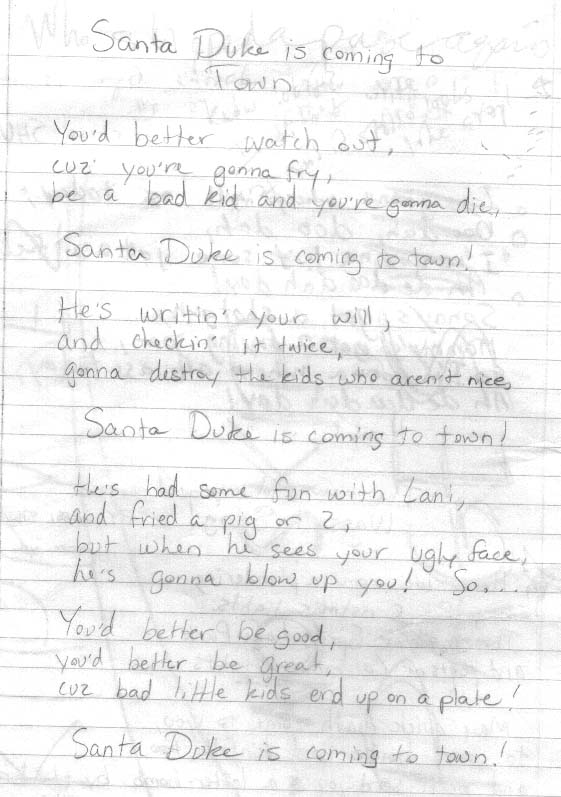 Santa Duke is coming to
Town
You'd better watch out,
cuz you're gonna fry,
be a bad kid and you're gonna die,
Santa Duke is coming to town!
He's writin' your will,
and checkin' it twice,
gonna destroy the kids who aren't nice,
Santa Duke is coming to town!
He's had some fun with Lani,
and fried a pig or 2,
but when he sees your ugly face,
he's gonna blow up you! So....
You'd better be good,
you'd better be great,
cuz bad little kids end up on a plate!
Santa Duke is coming to town!